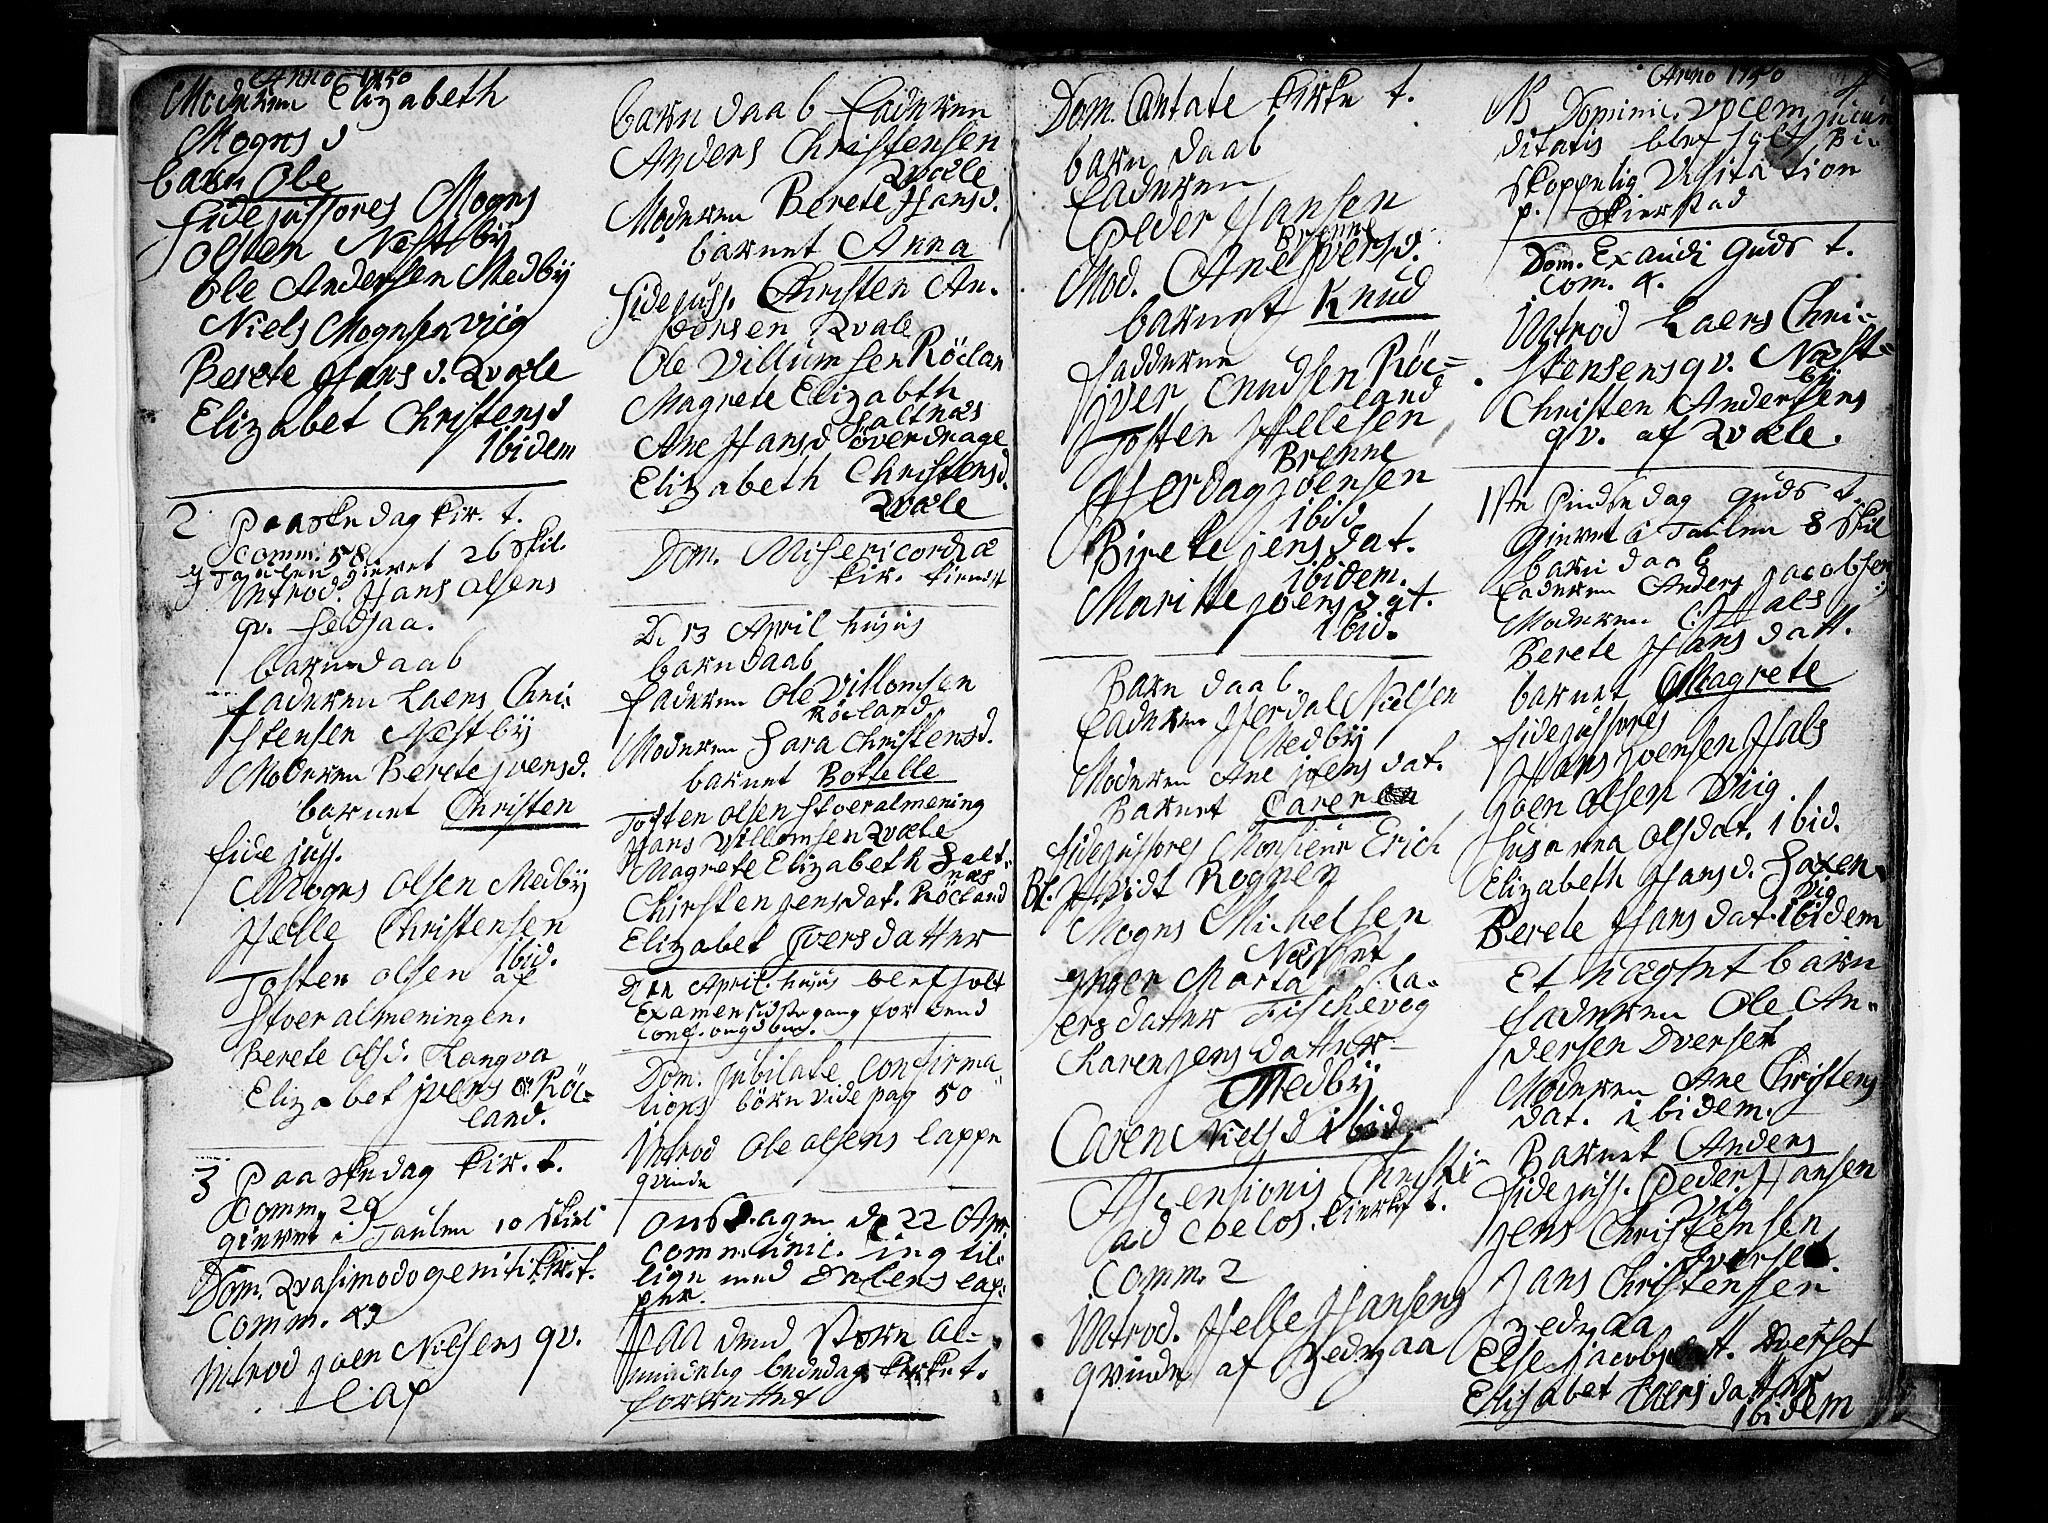 Anno 1750
Moderen Elizabeth
Mogns d
barn Ole
fidejussores Mogns
Olsen Nestby
Ole Andersen Medbÿ
Niels Mognsen Viig
Berete Hans d. Qvæle
Elizabet Christensd
Ibidem
2 Paaskedag kir. t.
Comm. 58
J Taulen gievet 26 skil.
Introd. Hans Olsens
qv. Sedsaa.
barn daab
faderen Laers Chri-
stensen Nestbÿ
Moderen Berete Joensd.
barnet Christen
fidejuss.
Mogns Olsen Medbÿ
Helle Christensen
Ibid.
Tosten Olsen af
Stveralmeningen.
Berete Olsd. Hangva
Elizabet Jvers Röc-
land.
3 Paaskedag kir. t.
Comm. 29
gievet i Taulen 10 skil
Dom. Qvasimodogeniti kir. t.
Comm. 49
Introd Joen Nielsens qv.
Lap
barn daab Faderen
Anders Christensen
Qvæle
Moderen Berete Hansd.
barnet Anna
fidejuss. Christen An-
dersen Qvæle
Ole Villumsen Röclan
Magrete Elizabeth
Saltnæs
Ane Hansd överdrage
Elizabeth Christensd.
Qvæle
Dom. Misericordiæ
kir. tienest
D. 13 April hujus
barn daab
faderen Ole Villomsen
Röcland.
Moderen Sara Christensd.
barnet Botelle
Tosten Olsen Stveralmening
Hans Villomsen Qvæle
Magrete Elizabeth Salt-
næs
Chirsten Jensdat. Röcland
Elizabet Jversdatter
D. April. hujus blef holt
Examen sidste gang for dend
conf. ungdom.
Dom. Jubilate Confirma-
tions börn vide pag 50
Introd Ole Olsens Lappe
qvinde
Onsdagen d. 22 Apr.
communic. ingtil-
lige med Delens lap-
per.
Paa dend store al-
mindelig bededag kirke t.
forrettet
Dom. Cantate kirke t.
barn daab
faderen
Peder Hansen
Brenne
Mod. Ane Jversd.
barnet Knud
fadderne
Jver Cnudsen Röc-
land
Josten Hellesen
Brenne
Herdag Joensen
ibid
Birete Jensdat.
ibidem.
Maritte Joensdgt.
ibid.
Barn daab.
Faderen Herdal Nielsen
Medbÿ
Moderen Ane Joensdat.
Barnet Caren
fidejussores Monsieur Erich
Bt. Hvidt Rognen
Mogns Michelsen
Næsset
Inger Marta La-
ersdatter Fischevog
Karen Jensdatter
Medbÿ
Caren Nielsd ibid
Ascensionis Christi
ad coelos. kierke t.
Comm. 2
Introd. Helle Hansens
qvinde af Zedzaa
Anno 1750
NB Dominic. vocem jucun
ditatis blef holt Bi-
skoppelig Visitation
p. Skierstad
Dom. Exaudi Guds t.
Com. 4.
Introd Laers Chri-
stensens qv. Næst-
bÿ
Christen Andersens
qv. af Qvæle.
1ste Pindsedag Guds t.
Gievet i Taulen 8 skil
barn daab
Faderen Anders Jacobsen
Moderen Hals
Berete Hans datt.
barnet Magrete
fidejussores
Hans Joensen Hals
Joen Olsen Viig.
Susanna Olsdat. Ibid.
Elizabeth Hansd. Saxen-
vig
Berete Hansdat. Ibidem
Et Uægte barn
faderen Ole An-
dersen Dverset
Moderen Ane Christens
dat. ibidem.
Barnet Anders
fidejuss. Peder Hansen
Vig
Jens Christensen
Dverset.
Hans Christensen
Zedzaa
Else Jacobs t. Dverset
Elisabet Laersdatter
Ibidem